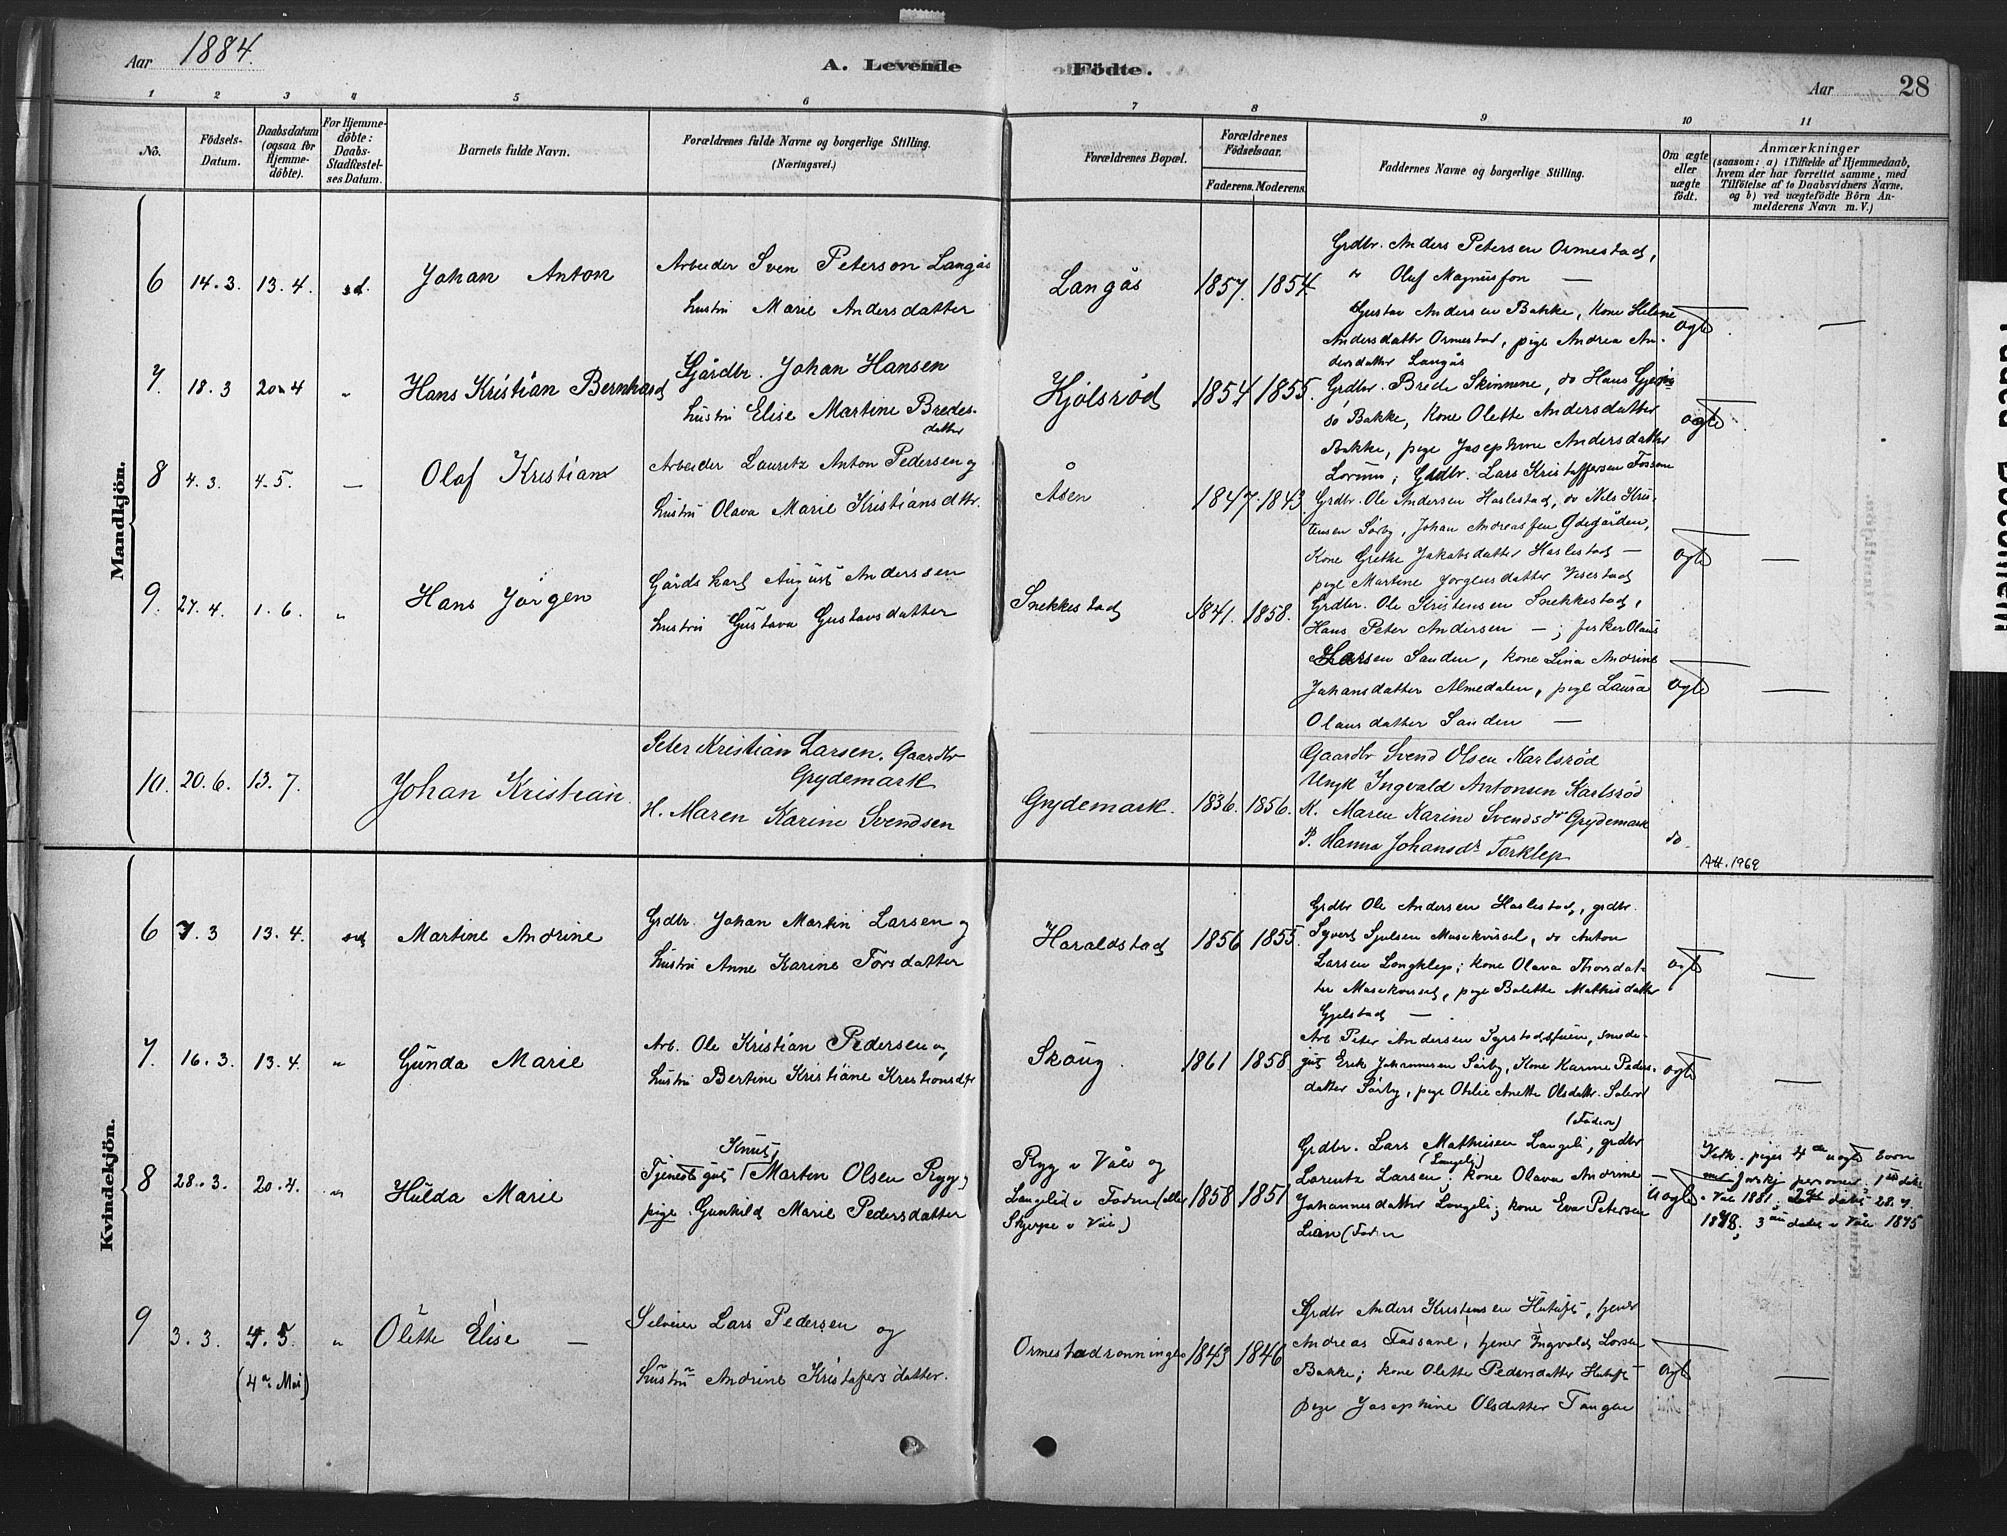 Aar 1884. A. Levende Födte. Aar 28
1 2 3 4 5 6 7 8 9 10 11
No. Födsels-Datum. Daabsdatum (ogsaa for Hjemme-döbte). For Hjemme-döbte: Daabs-Stadfæstel-ses Datum. Barnets fulde Navn. Forældrenes fulde Navne og borgerlige Stilling. (Næringsvei.) Forældrenes Bopæl. Forældrenes Födselsaar. Faderens. Moderens. Faddernes Navne og borgerlige Stilling. Om ægte eller uægte født. Anmærkninger
(saasom: a) i Tilfælde af Hjemmedaab,
hvem der har forrettet samme, med
Tilföielse af to Daabsvidners Navne,
og b) ved uægtefödte Börn An-
melderens Navn m. V.)
Mandkjön.
6 14.3. 13.4. sd. Johan Anton
Arbeider Sven Peterson Langås
hustru Marie Andersdatter
Langås 1857. 1854.
Grdbr. Anders Petersen Ormestad,
" Oluf Magnusson —
Gustav Andersen Bakke, Kone Helene
Andersdatter Ormestad, pige Andrea An-
dersdatter Langås
ægte —
7. 18.3 20.4 " Hans Kristian Bernhard
Gårdbr. Johan Hansen
hustru Elise Martine Bredes-
datter
Kjølsrød 1854 1855.
Grdbr. Brede Skinnene, do Hans
do Bakke, Kone Olette Andersdatter
Bakke, pige Josephine Andersdatter
Lorum; Grdbr. Lars Kristoffersen Fossane
ægte
8 4.3. 4.5. — Olaf Kristian
Arbeider Lauritz Anton Pedersen og
hustru Olava Marie Kristiansdtr.
Åsen 1847. 1843.
Grdbr. Ole Andersen Harlestad, do Nils Kris-
tensen Sørby, Johan Andreassen Ødegården,
Kone Grethe Jakobsdatter Harlestad —
pige Martine Jørgensdatter Vesestad
ægte —
9. 27.4. 1.6. " Hans Jørgen
Gårdskarl August Anderssen
hustru Gustava Gustavsdatter
Snekkestad 1841. 1858.
Grdbr. Ole Kristensen Snekkestad,
Hans Peter Andersen — ; fisker Olaus
Larsen Sanden, kone Lina Andrine
Johansdatter Almedalen, pige Laura
Olausdatter Sanden —
ægte —
10. 20.6. 13.7. Johan Kristian.
Peter Kristian Larsen. Gaardbr
Grydemark
H. Maren Karine Svendsen
Grydemark. 1836. 1856.
Gaardbr Svend Olsen Karlsrød
Ungk Ingvald Antonsen Karlsrød
K. Maren Karine Svendsdr Grydemark
P. Hanna Johansdr Torklep
do.
Att. 1969
Kvindekjön.
6 7.3 13.4. sd Martine Andrine
Grdbr. Johan Martin Larsen og
hustru Anne Karine Torsdatter
Haraldstad 1856 1855.
Grdbr Ole Andersen Harlestad, grdbr.
Syvert Sjulsen Masekvissel, do Anton
Larsen Langklep; kone Olava Thorsdat-
ter Masekvissel, pige Bolette Mathisdatter
Gjelstad —
ægte —
7. 16.3. 13.4. " Gunda Marie
Arb. Ole Kristian Pedersen og
hustru Bertine Kristiane Kristiansdtr
Skoug. 1861 1858
Arb Peter Andersen, smede-
gut Erik Johannesen Sørby, Kone Karine Peders-
datter Sørby, pige Otilie Anette Olsdattr.
ægte —
8 28.3. 20.4. " Hulda Marie
Knut
Tjenestegut Martin Olsen Ryg,
pige Gunhild Marie Pedersdatter
Ryg i Våle og
Langelid i Fadrum (eller
Skjerpe i Våle)
1858 1851
Grdbr. Lars Mathisen Langeli, grdbr
(Langeli)
Lorentz Larsen. kone Olava Andrine
Johannesdatter Langeli; kone Eva Petersen
Lian
uægte
1878; 3die døbt i Våle 1875
9 3.3. 4.5. " Olette Elise —
(4de Mai)
Selveier Lars Pedersen og
hustru Andrine Kristofersdatter.
Ormestadrønningen 1843 1846
Grdbr Anders Kristensen Hutuft, tjener
Andreas Fossane, tjener Ingvald Larsen
Bakke; kone Olette Pedersdatter Hutuft
pige Josephine Olsdatter Tangen
ægte —